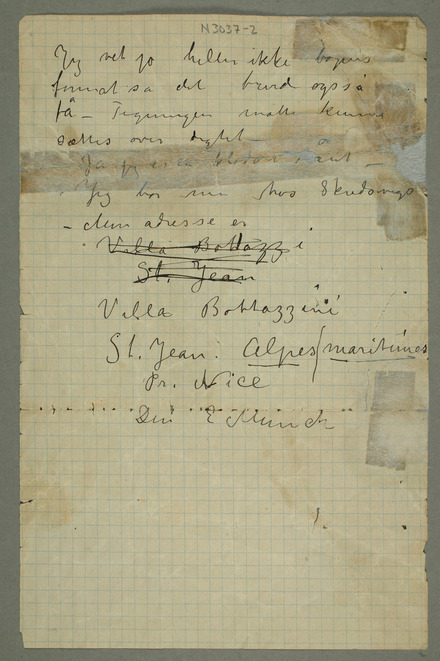 N3037-2
Jeg vet jo heller ikke bogens
format så det burde også
få – Tegningen måtte kunne
sættes over digtet
Ja jeg er en
Jeg bor nu hos Skredsvigs
– dem adresse er
Villa Bottazzi
St. Jean
Villa Bottazzini
St. Jean. Alpes maritimes
Pr. Nice
Din E Munch